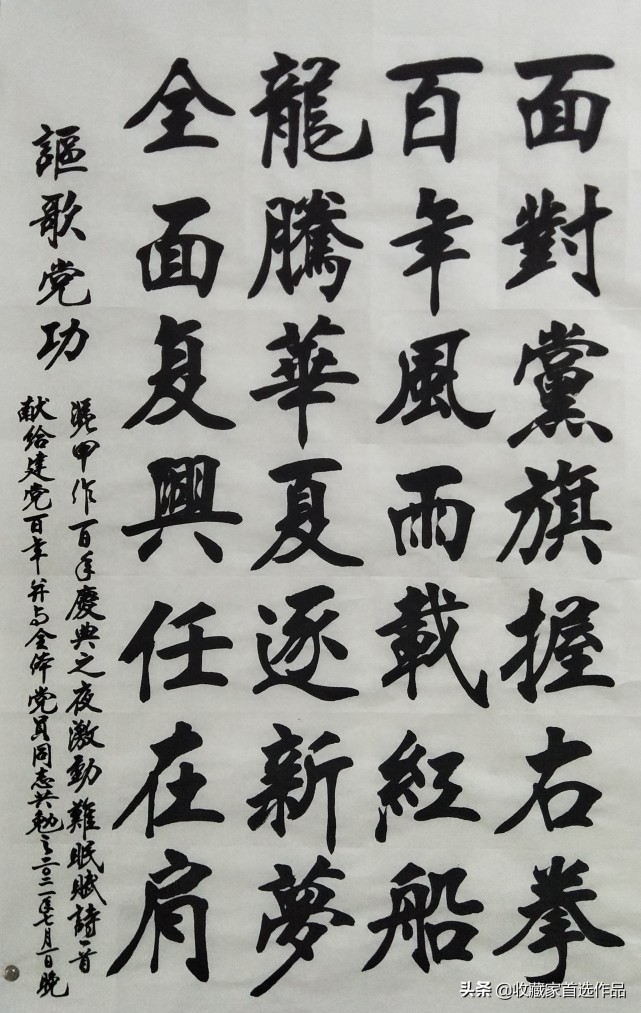 面對黨旗握右拳
百年風雨載紅船
龍騰華夏逐新夢
全面复興任在肩
謳歌党功
甲作百年慶典之夜激动難眠賦詩一首
献给建党百年并与全体党員同志共勉之二〇二一年七月一日晚
头条 @收藏家首选作品